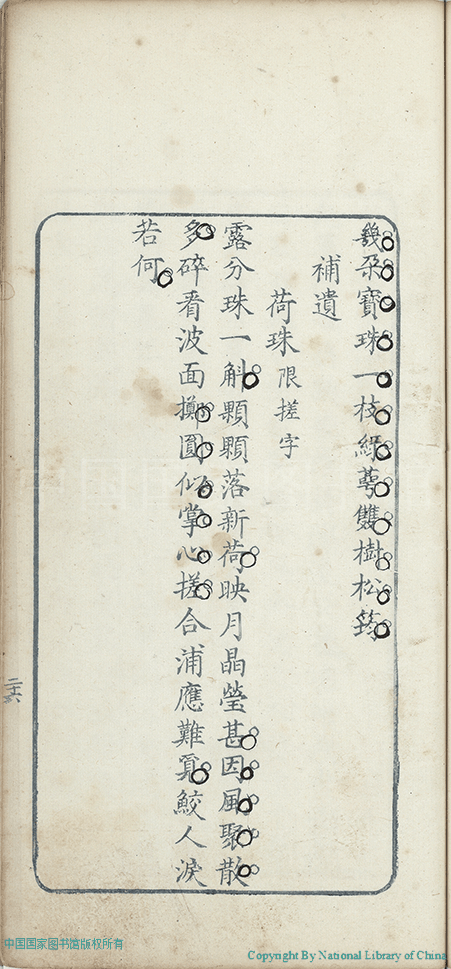 幾朶寶珠一枝綠萼雙樹松筠
補遺
荷珠 限搓字
露分珠一斛顆顆落新荷映月晶瑩甚因風聚散
多碎看波面擲圓似掌心搓合浦應難覓鮫人淚
若何
二十六
中国国家图书馆版权所有
Copyright By National Library of China